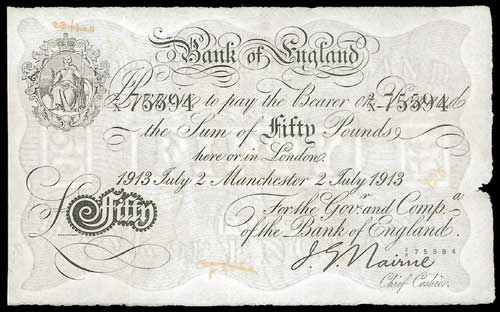 Bank of England
I Promise to pay the Bearer on Demand
2/X 75394 2/X 75394
the Sum of Fifty Pounds
here or in London.
1913 July 2 Manchester 2 July 1913
For the Gov.r and Comp.a
of the Bank of England.
£ Fifty
75594
J. G. Nairne
Chief Cashier.